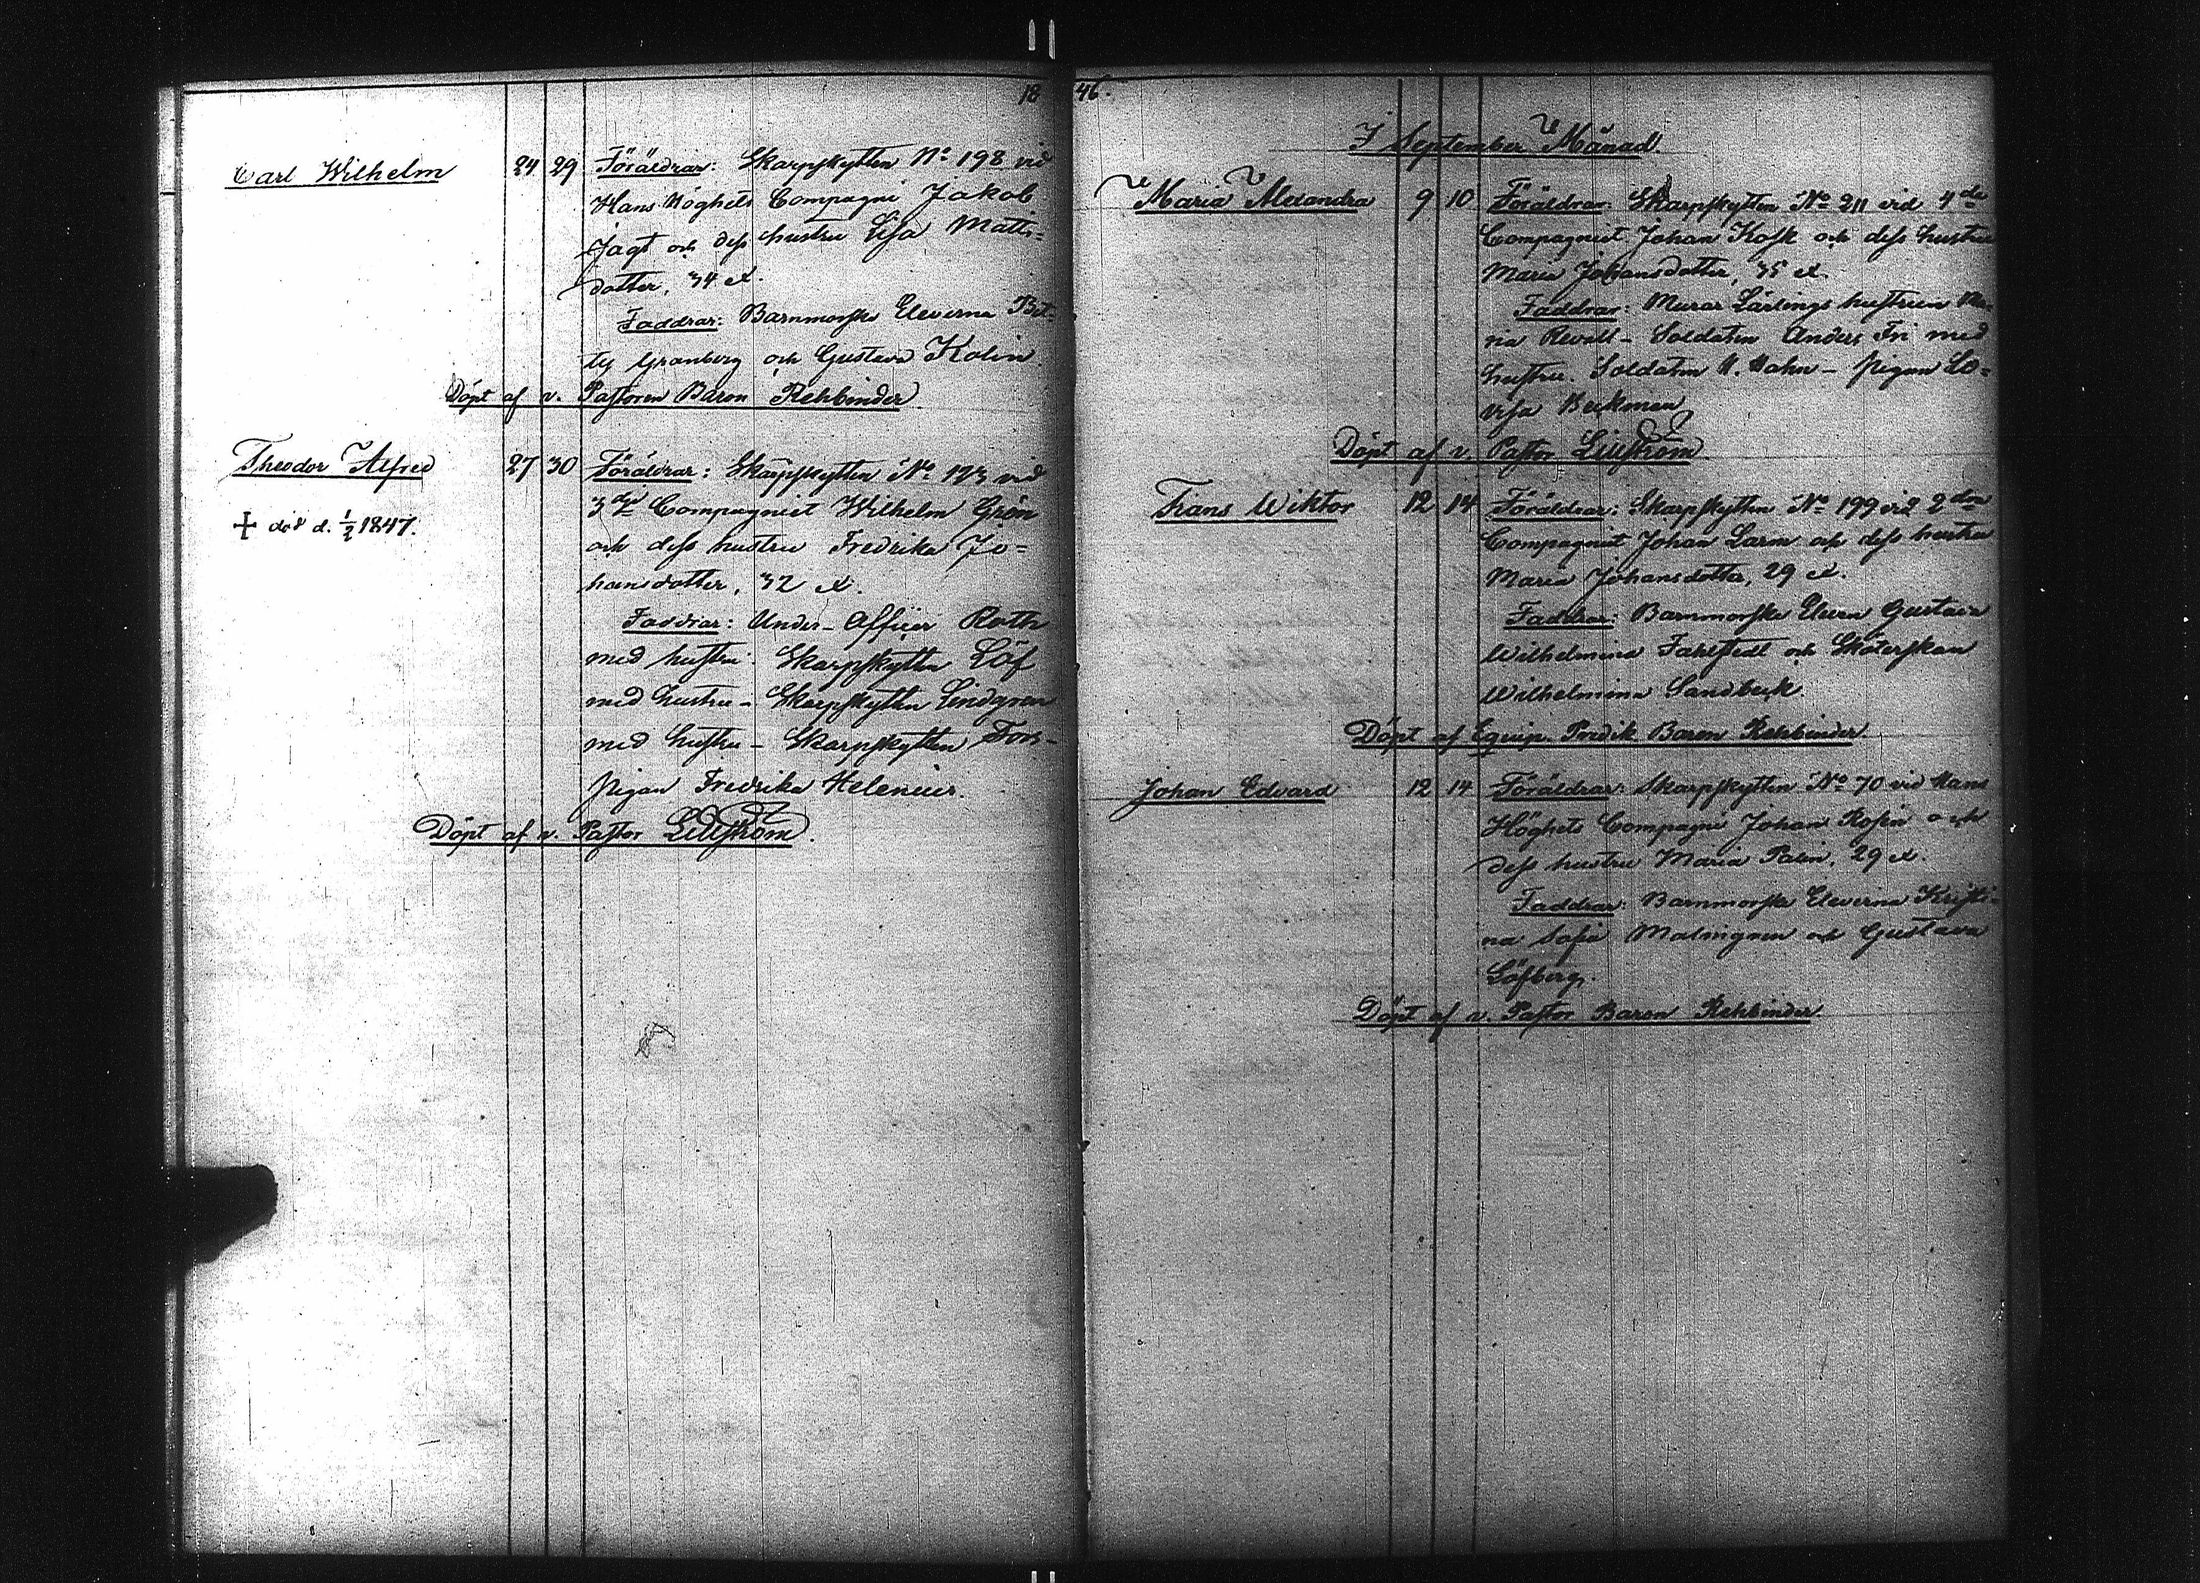 1846.
Carl Wilhelm 24 29 Föräldrar: Skarpskytten No 198 vid
Hans Höghets Compagni Jakob
Jagt och dess hustru Lisa Matts-
dotter, 34 et.
Faddrar: Barnmorske Eleverna Bet-
ty Granberg och Gustava Kolin
Döpt af v. Pastoren Baron Rehbinder
Theodor Alfred 27 30 Föräldrar: Skarpskytten No 123 vid
† död d. 1/2 1847.
3dje Compagniet Wilhelm Grön
och dess hustru Fredrika Jo-
hansdotter, 32 et.
Faddrar: Under-Officer Roth
med hustru - Skarpskytten Löf
med hustru - Skarpskytten Lindgren
med hustru - Skarpskytten Fors-
pigan Fredrika Helenius.
Döpt af v. Pastor Lilljström.
I September Månad
Maria Alexandra 9 10 Föräldrar: Skarpskytten No 211 vid 4de
Compagniet Johan Kosk och dess hustru
Maria Johansdotter, 35 et.
Faddrar: Murar Lärlings hustrun Ma-
ria Revall - Soldaten Anders Fri med
hustru. Soldaten H. Hahn - pigan Lo-
visa Bekman
Döpt af v. Pastor Lilljström
Frans Wiktor 12 14 Föräldrar: Skarpskytten No 199 vid 2dra
Compagniet Johan Larm och dess hustru
Maria Johansdotter, 29 et.
Faddrar: Barnmorske Eleven Gustava
Wilhelmina Farstedt och Sköterskan
Wilhelmina Sandbeck
Döpt af Equip. Predik. Baron Rehbinder.
Johan Edvard 12 14 Föräldrar: Skarpskytten No 70 vid Hans
Höghets Compagni Johan Rosin och
dess hustru Maria Palin, 29 et.
Faddrar: Barnmorske Eleverna Kristi-
na Sofia Malmgren och Gustava
Löfberg.
Döpt af v. Pastor Baron Rehbinder